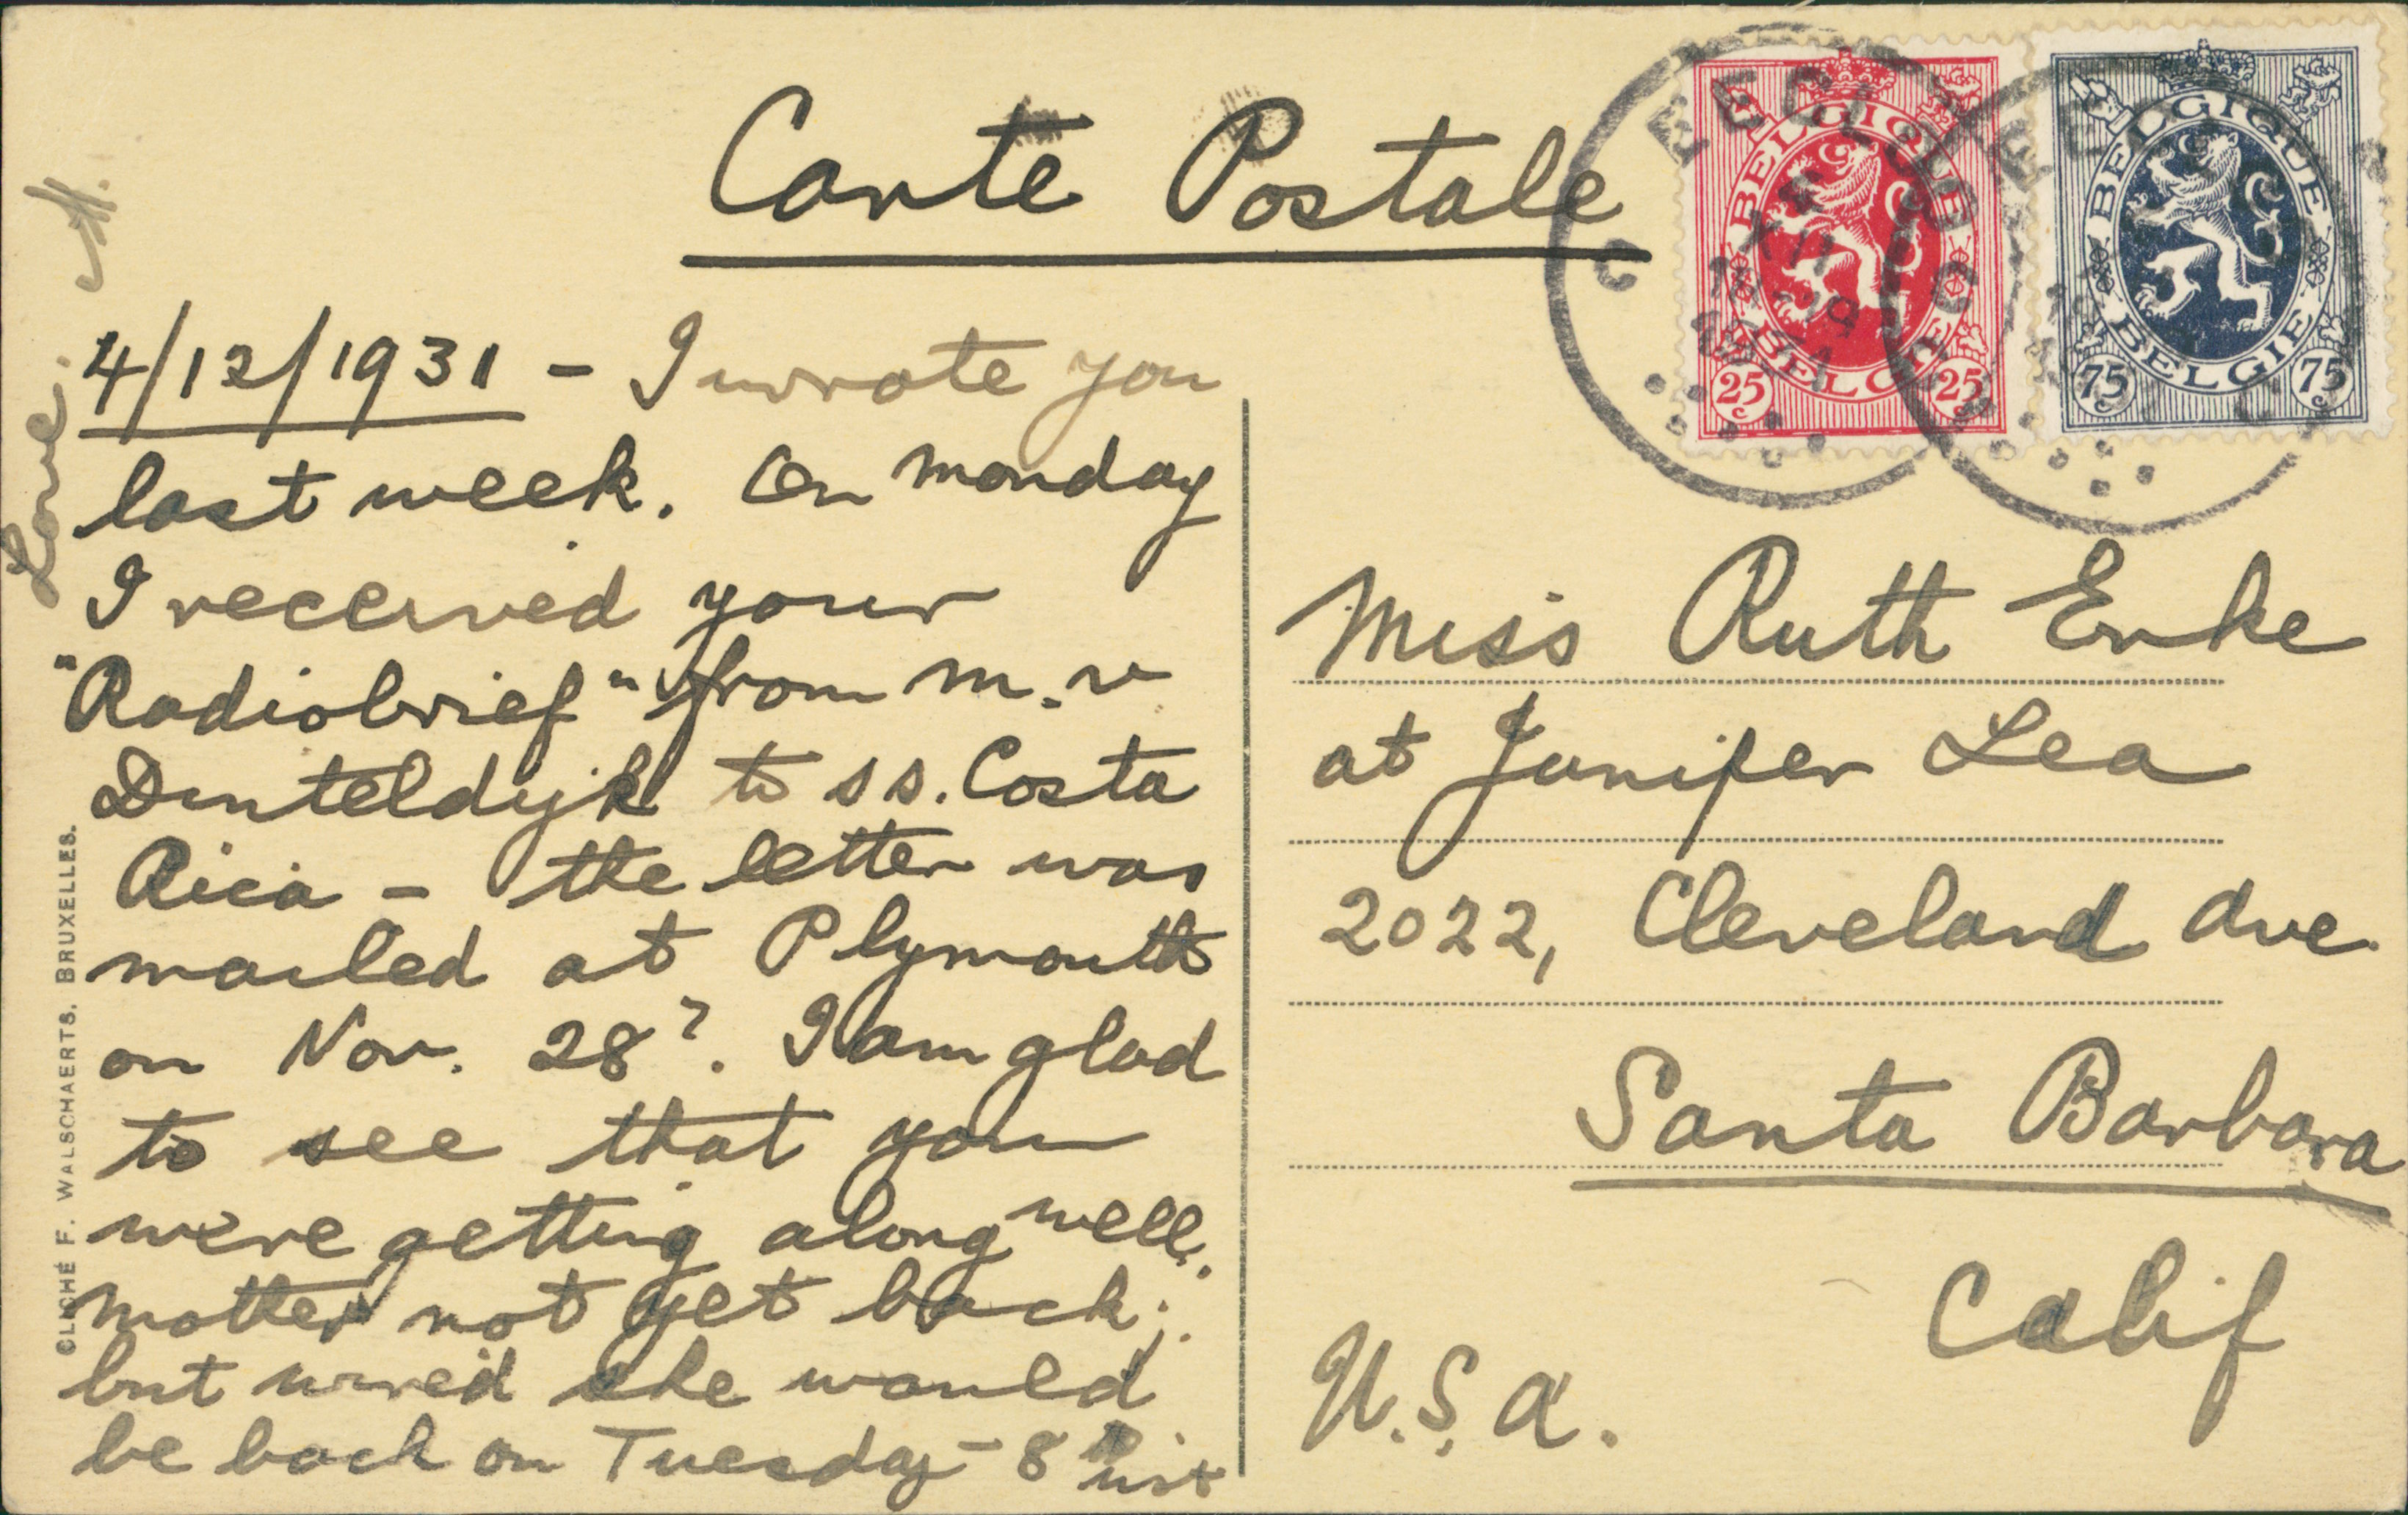 Carte Postale
4/12/1931 - I wrote you
last week. On Monday
I received your
"Radiobrief" from m.v.
Dinteldyk to ss. Costa
Rica - the letter was
mailed at Plymouth
on Nov. 28?. I am glad
to see that you
were getting along well.
Mother not yet back;
but wired she would
be back on Tuesday - 8th inst
Love. M.
CLICHÉ F. WALSCHAERTS. BRUXELLES.
BELGIQUE
BELGIE
25 c 25 c
BELGIQUE
BELGIE
75 c 75 c
EECLOO
Miss Ruth Erke
at Junifer Lea
2022, Cleveland Ave.
Santa Barbara
Calif
U.S.A.